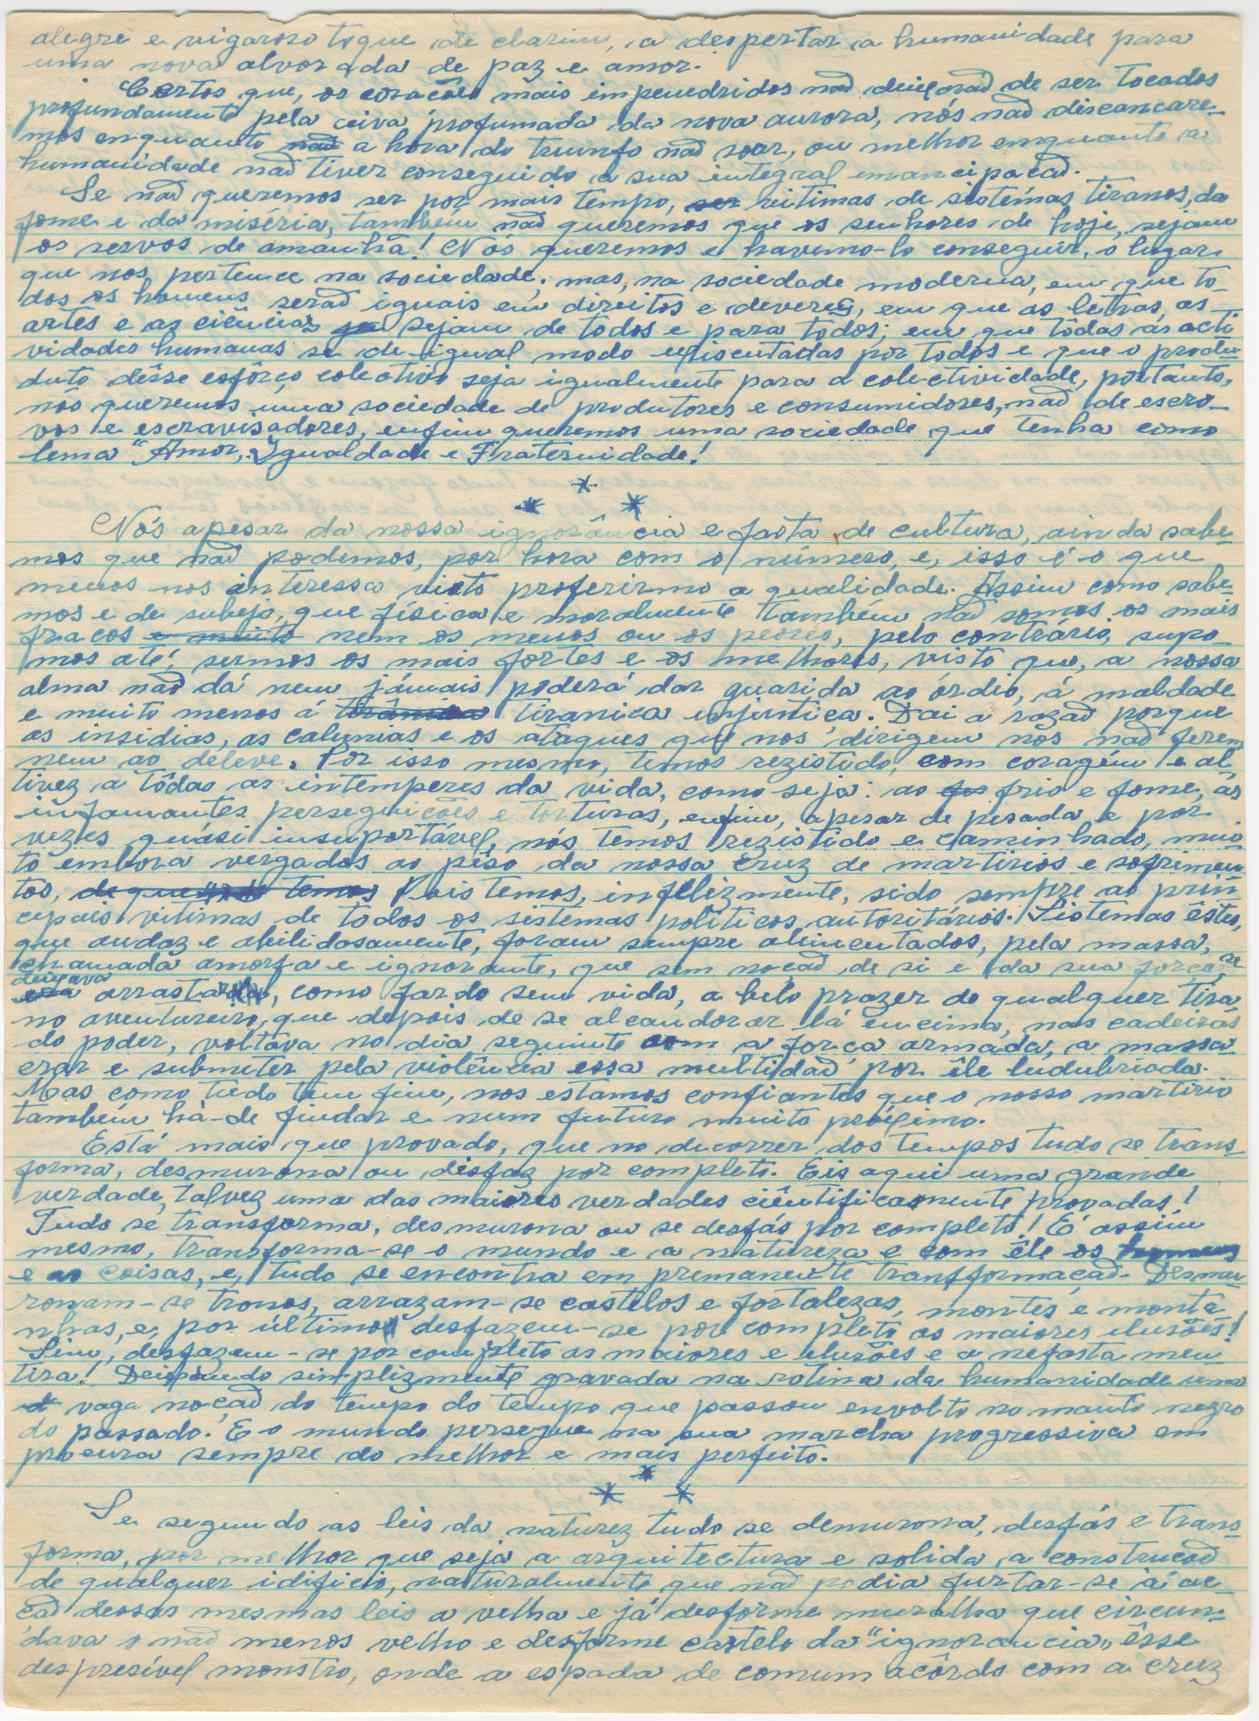 alegre e vigoroso toque de clarim, a despertar a humanidade para
uma nova alvorada de paz e amor.
Certos que, os corações mais impenedridos naõ deixaraõ de ser tocados
profundamente pela ceiva profumada da nova aurora, nós naõ discancare-
mos enquanto naõ a hora do triunfo naõ soar, ou melhor enquanto a
humanidade naõ tiver conseguido a sua integral imancipacaõ.
Se naõ queremos ser por mais tempo, ser vitimas de sistémas tiranos, da
fome e da miséria, também naõ queremos que os senhores de hoje, sejam
os servos de amanhã! Nós queremos e havemo-lo conseguir, o lugar
que nos pertence na sociedade; mas, na sociedade moderna, em que to-
dos os homens seraõ iguais em direitos e deveres, em que as letras, as
artes e as ciências sejam de todos e para todos; em que todas as acti-
vidades humanas se de igual modo exiscutadas por todos e que o produ-
duto dêsse esfôrço colectivo seja igualmente para a colectividade, portanto,
nós queremos uma sociedade de produtores e consumidores, naõ de escra-
vos e escravisadores, enfim queremos uma sociedade que tenha como
lema "Amor, Igualdade e Fraternidade!
* * *
Nós apesar da nossa ignorância e fasta de cultura, ainda sabe-
mos que naõ podemos, por hora com o número, e, isso é o que
menos nos interessa visto proferirmo a qualidade. Assim como sabe-
mos e de subejo, que física e moralmente também naõ somos os mais
fracos e muito nem os menos ou os peores, pelo contrário, supo-
mos até, sermos os mais fortes e os melhores, visto que, a nossa
alma naõ dá nem jámais poderá dar guarida ao órdio, á maldade
e muito menos á tiranica injustiça. Dai a razaõ porque
as insidias, as calunias e os ataques que nos dirigem nós naõ ferem
nem ao deleve. Por isso mesmo, temos rezistido, com coragém e al-
tivez a tôdas as intemperes da vida, como seja: ao frio e fome, as
infamantes perseguições e torturas, enfim, apesar de pesada e por
vezes quási insuportável, nós temos rezistido e caminhado, mui-
to embora vergados ao pêso da nossa cruz de martirios e sofrimen-
tos, temos Pois temos, infelizmente, sido sempre as prin-
cipais vitimas de todos os sistemas politicos, autoritários. Sistemas êstes,
que audaz e abilidosamente, foram sempre alimentados, pela massa,
chamada amorfa e ignorante, que sem nocaõ de si e da sua força, se
deixava
arrastar, como fardo sem vida, a belo prazer de qualquer tira-
no aventureiro, que depois de se alcandorar lá em cima, nas cadeiras
do poder, voltava no dia seguinte com a força armada, a massa-
crar e submeter pela violência essa multidaõ por êle ludubriada.
Mas como tudo tem fim, nos estamos confiantes que o nosso martirio
também há-de findar e num futuro muito próximo.
Está mais que provado, que no decorrer dos tempos tudo se trans-
forma, desmurona ou disfaz por completo. Eis aqui uma grande
verdade, talvez uma das maiores verdades ciêntificamente provadas!
Tudo se transforma, desmurona ou se desfás por completo! É assim
mesmo, transforma-se o mundo e a natureza e com êle os homens
e as coisas, e, tudo se encontra em premanente transformacaõ. Desmu-
ronam-se tronos, arrazam-se castelos e fortalezas, montes e monta-
nhas, e, por último, desfazem-se por completo as maiores ilusões!
Sim, desfazem-se por completo as maiores e ilusões e a nefasta men-
tira! Deixando simplizmente gravada na rotina da humanidade uma
vaga nocaõ do tempo do tempo que passou envolto no manto negro
do passado. E o mundo persegue na sua marcha progressiva em
procura sempre do melhor e mais perfeito.
* * *
Se segundo as leis da naturez tudo se demurona, desfás e trans-
forma, por melhor que seja a arquitectura e solida a construcaõ
de qualquer idificio, naturalmente que naõ podia furtar-se á ac-
çaõ dessas mesmas leis a velha e já desforme muralha que circun-
dava o naõ menos velho e desforme castelo da "ignorancia", êsse
despresível monstro, onde a espada de comum acôrdo com a cruz